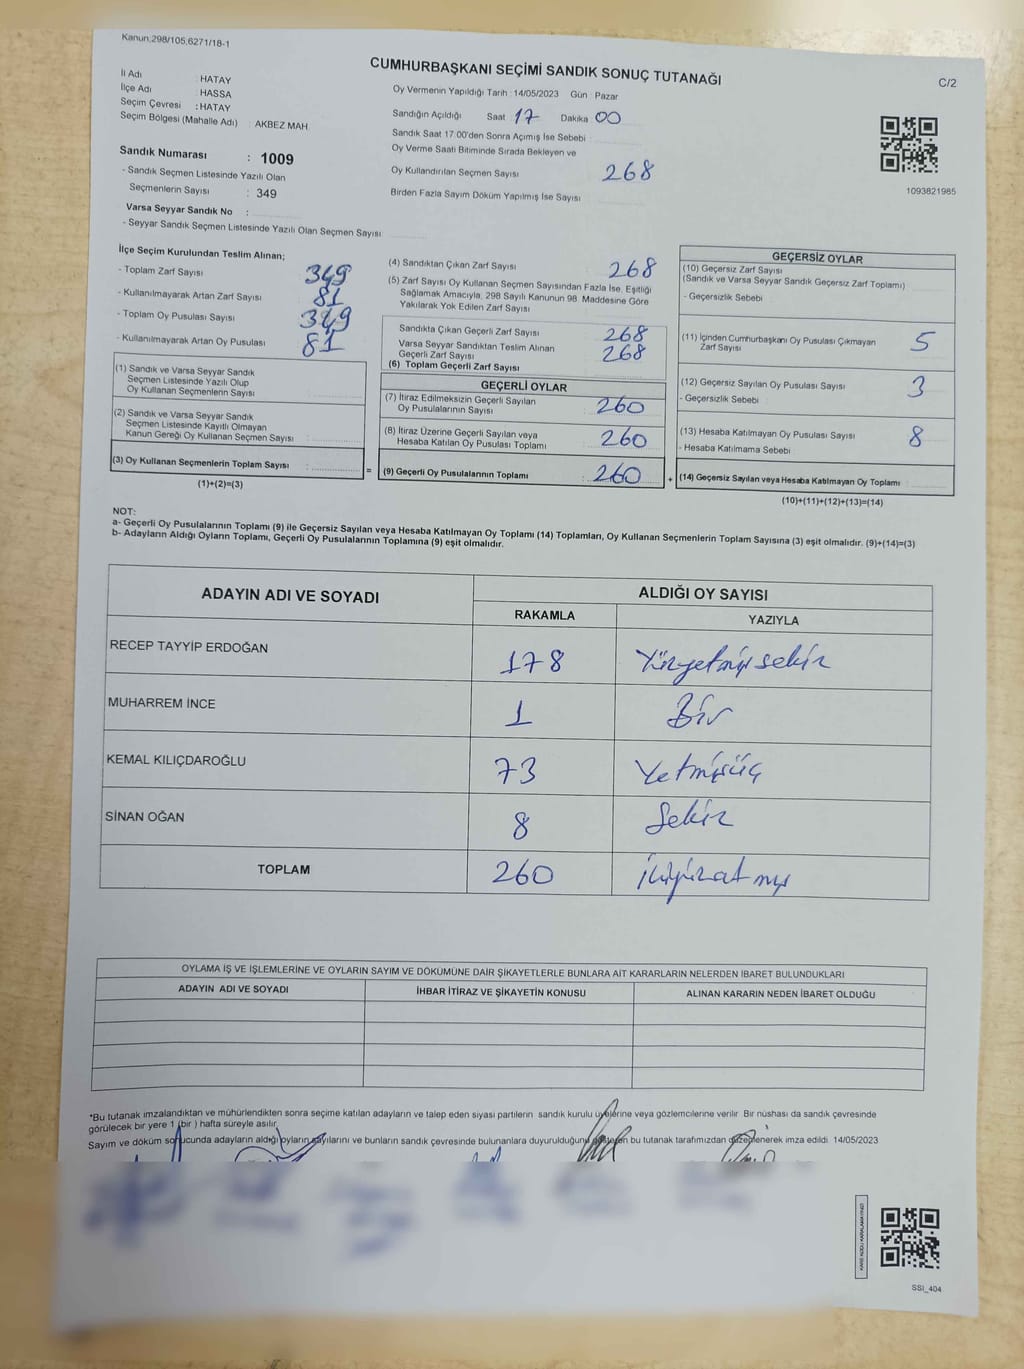 Kanun:298/105;6271/18-1
CUMHURBAŞKANI SEÇİMİ SANDIK SONUÇ TUTANAĞI
C/2
İl Adı : HATAY
İlçe Adı : HASSA
Seçim Çevresi : HATAY
Seçim Bölgesi (Mahalle Adı) : AKBEZ MAH.
Sandık Numarası : 1009
- Sandık Seçmen Listesinde Yazılı Olan
Seçmenlerin Sayısı : 349
Varsa Seyyar Sandık No :
- Seyyar Sandık Seçmen Listesinde Yazılı Olan Seçmen Sayısı
Oy Vermenin Yapıldığı Tarih : 14/05/2023 Gün Pazar
Sandığın Açıldığı Saat 17 Dakika 00
Sandık Saat 17:00'den Sonra Açımış İse Sebebi
Oy Verme Saati Bitiminde Sırada Bekleyen ve
Oy Kullandırılan Seçmen Sayısı 268
Birden Fazla Sayım Döküm Yapılmış İse Sayısı
1093821985
İlçe Seçim Kurulundan Teslim Alınan;
- Toplam Zarf Sayısı 349
- Kullanılmayarak Artan Zarf Sayısı 81
- Toplam Oy Pusulası Sayısı 349
- Kullanılmayarak Artan Oy Pusulası 81
(1) Sandık ve Varsa Seyyar Sandık
Seçmen Listesinde Yazılı Olup
Oy Kullanan Seçmenlerin Sayısı :
(2) Sandık ve Varsa Seyyar Sandık
Seçmen Listesinde Kayıtlı Olmayan
Kanun Gereği Oy Kullanan Seçmen Sayısı :
(3) Oy Kullanan Seçmenlerin Toplam Sayısı :
(1)+(2)=(3)
(4) Sandıktan Çıkan Zarf Sayısı 268
(5) Zarf Sayısı Oy Kullanan Seçmen Sayısından Fazla İse, Eşitliği
Sağlamak Amacıyla, 298 Sayılı Kanunun 98. Maddesine Göre
Yakılarak Yok Edilen Zarf Sayısı
Sandıkta Çıkan Geçerli Zarf Sayısı 268
Varsa Seyyar Sandıktan Teslim Alınan
Geçerli Zarf Sayısı 268
(6) Toplam Geçerli Zarf Sayısı
GEÇERLİ OYLAR
(7) İtiraz Edilmeksizin Geçerli Sayılan
Oy Pusulalarının Sayısı 260
(8) İtiraz Üzerine Geçerli Sayılan veya
Hesaba Katılan Oy Pusulası Toplamı 260
= (9) Geçerli Oy Pusulalarının Toplamı : 260 +
GEÇERSİZ OYLAR
(10) Geçersiz Zarf Sayısı
(Sandık ve Varsa Seyyar Sandık Geçersiz Zarf Toplamı)
- Geçersizlik Sebebi
(11) İçinden Cumhurbaşkanı Oy Pusulası Çıkmayan
Zarf Sayısı 5
(12) Geçersiz Sayılan Oy Pusulası Sayısı 3
- Geçersizlik Sebebi
(13) Hesaba Katılmayan Oy Pusulası Sayısı 8
- Hesaba Katılmama Sebebi
(14) Geçersiz Sayılan veya Hesaba Katılmayan Oy Toplamı
(10)+(11)+(12)+(13)=(14)
NOT:
a- Geçerli Oy Pusulalarının Toplamı (9) ile Geçersiz Sayılan veya Hesaba Katılmayan Oy Toplamı (14) Toplamları, Oy Kullanan Seçmenlerin Toplam Sayısına (3) eşit olmalıdır. (9)+(14)=(3)
b- Adayların Aldığı Oyların Toplamı, Geçerli Oy Pusulalarının Toplamına (9) eşit olmalıdır.
ADAYIN ADI VE SOYADI
ALDIĞI OY SAYISI
RAKAMLA YAZIYLA
RECEP TAYYİP ERDOĞAN 178 Yüzyetmişsekiz
MUHARREM İNCE 1 Bir
KEMAL KILIÇDAROĞLU 73 Yetmişüç
SİNAN OĞAN 8 Sekiz
TOPLAM 260 İkiyüzatmış
OYLAMA İŞ VE İŞLEMLERİNE VE OYLARIN SAYIM VE DÖKÜMÜNE DAİR ŞİKAYETLERLE BUNLARA AİT KARARLARIN NELERDEN İBARET BULUNDUKLARI
ADAYIN ADI VE SOYADI İHBAR İTİRAZ VE ŞİKAYETİN KONUSU ALINAN KARARIN NEDEN İBARET OLDUĞU
*Bu tutanak imzalandıktan ve mühürlendikten sonra seçime katılan adayların ve talep eden siyasi partilerin sandık kurulu üyelerine veya gözlemcilerine verilir. Bir nüshası da sandık çevresinde
görülecek bir yere 1 (bir) hafta süreyle asılır.
Sayım ve döküm sonucunda adayların aldığı oyların sayılarını ve bunların sandık çevresinde bulunanlara duyurulduğunu gösteren bu tutanak tarafımızdan düzenlenerek imza edildi. 14/05/2023
KARE KODU KARALAMAYINIZ!
SSI_404